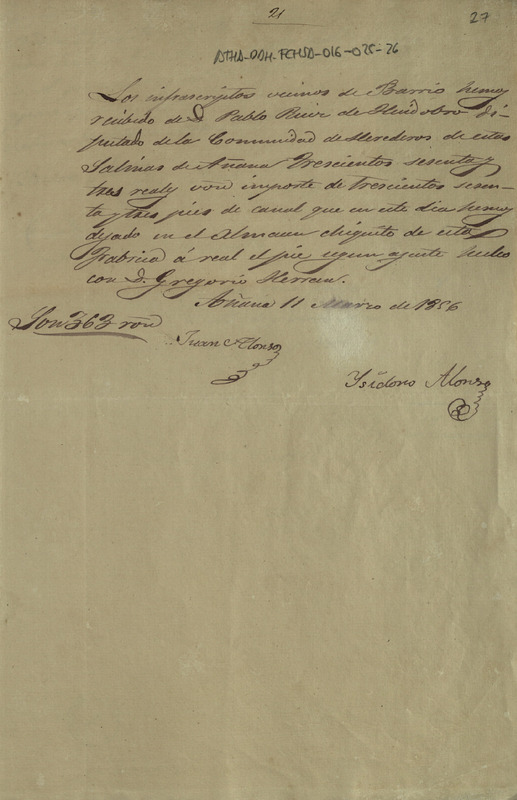 21
27
ATHA-DAH-FCMSA-016-025-26
Los infrascriptos vecinos de Barrio hemos
recibido de D. Pablo Ruiz de Huidobro di-
putado de la Comunidad de Herederos de estas
Salinas de Añana Trescientos sesenta y
tres reales von importe de trescientos sesen-
ta y tres pies de canal que en este dia hemos
dejado en el Almacen chiquito de esta
Fabrica á real el pie segun ajuste hecho
con D. Gregorio Herran.
Añana 11 Marzo de 1856
Son 363 rs von
Juan Alonso
Ysidoro Alonso